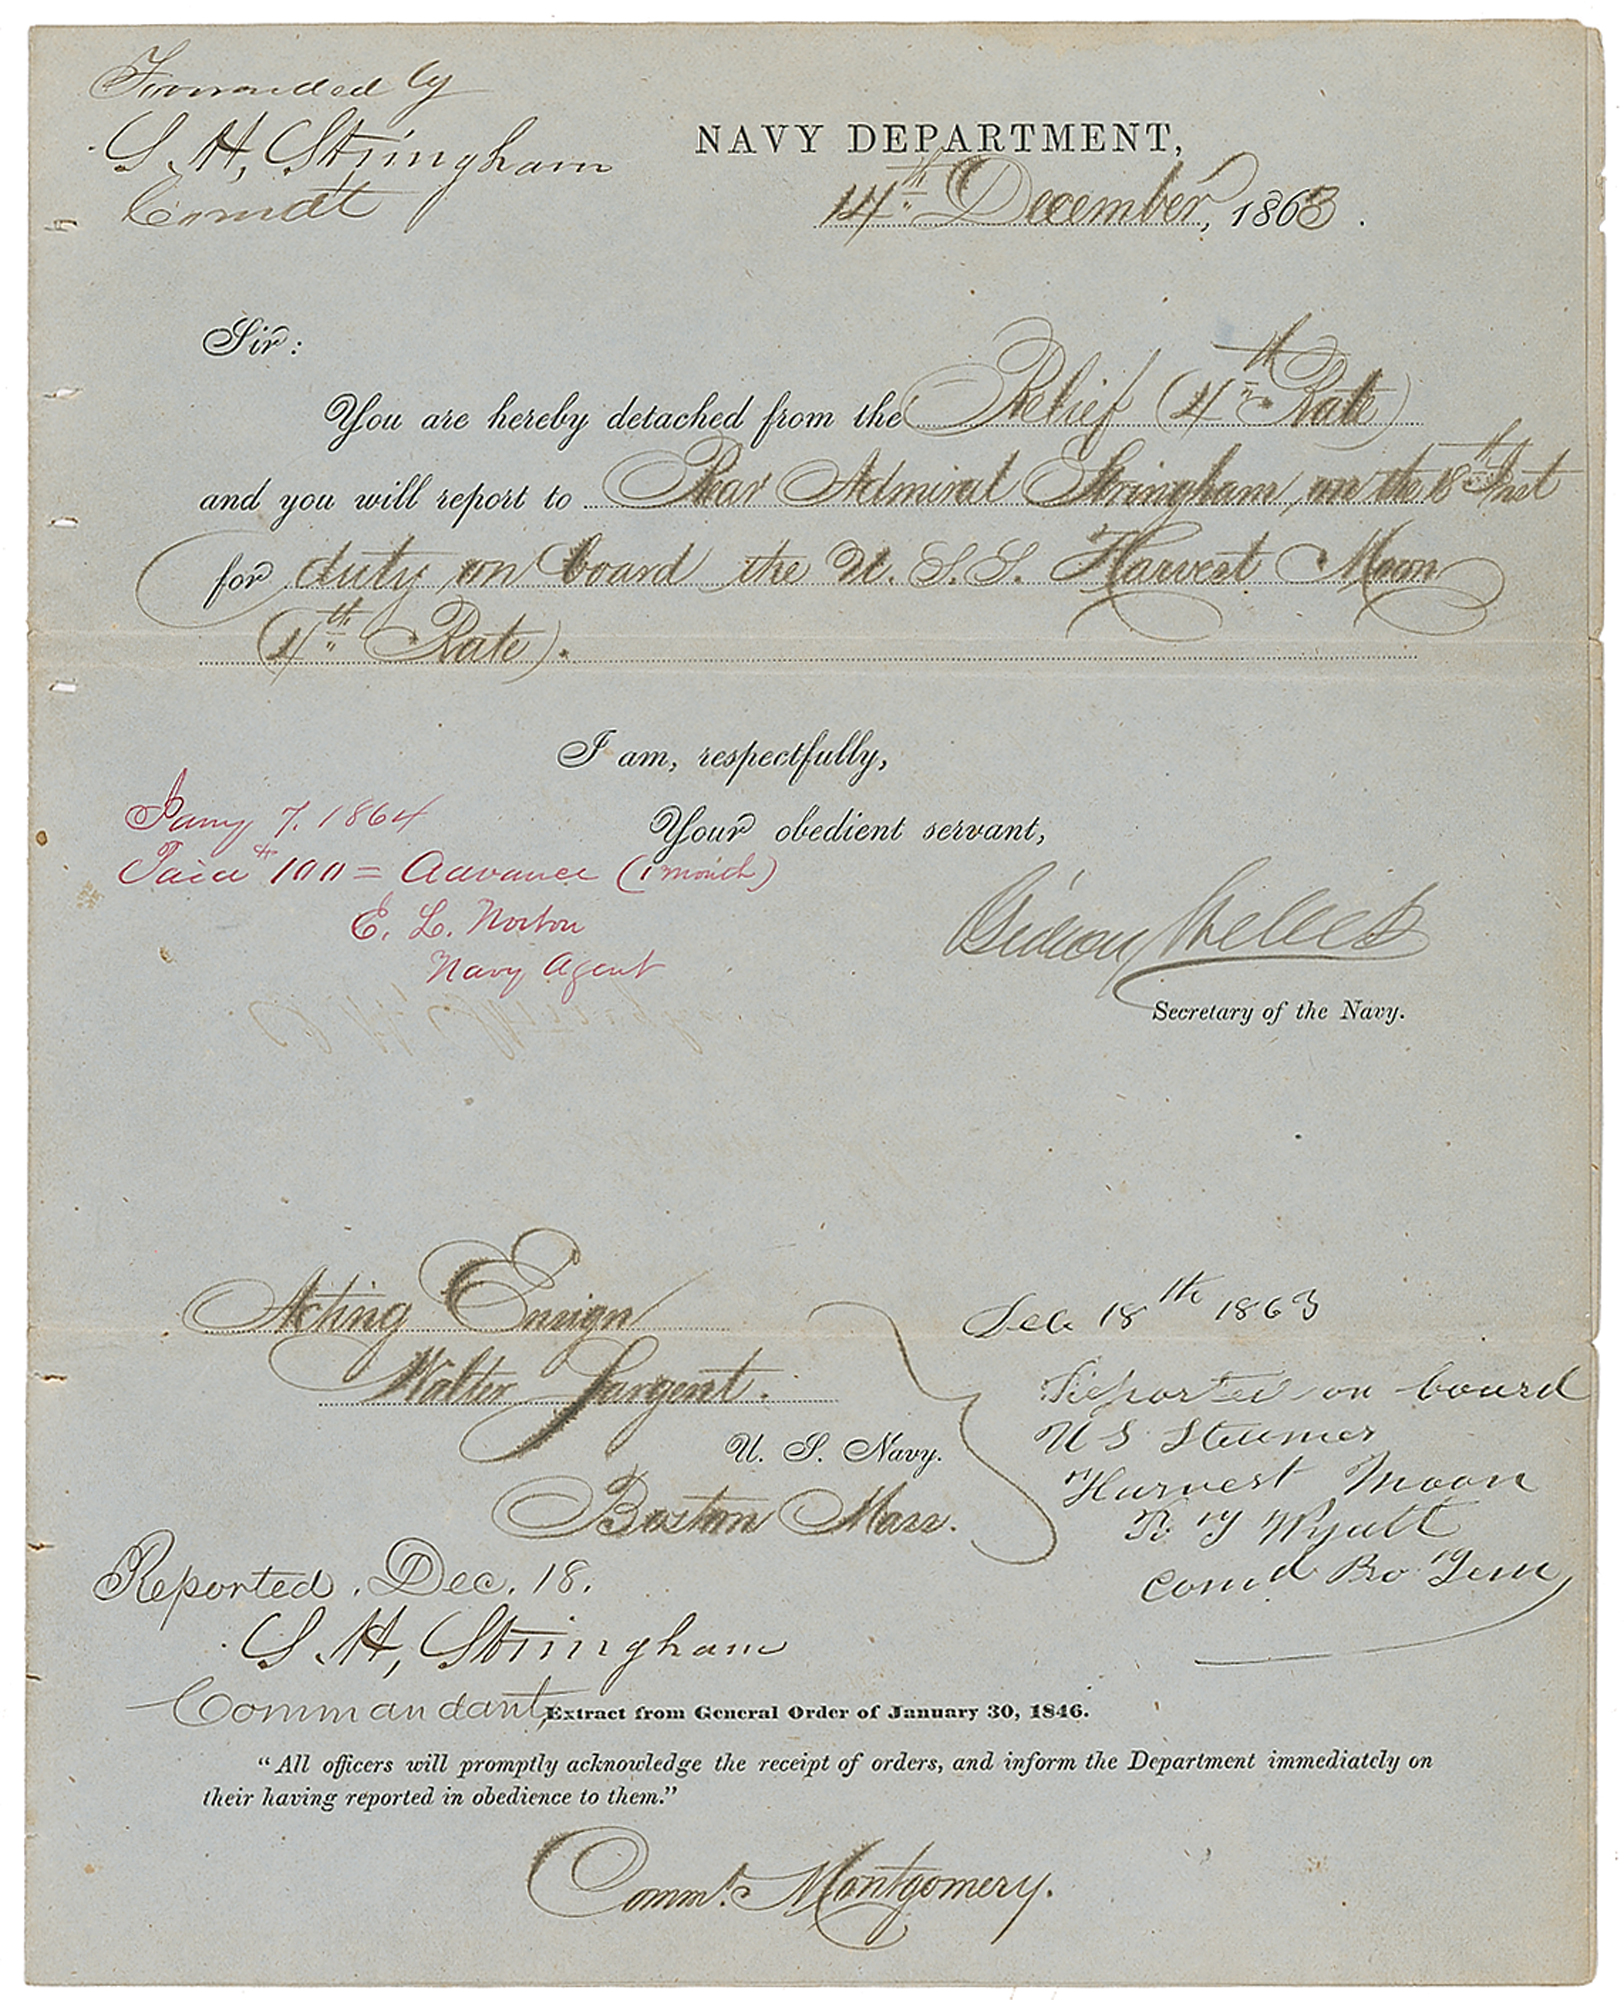 Forwarded by
S. H, Stringham
Comdt
NAVY DEPARTMENT,
14th December, 1863.
Sir:
You are hereby detached from the Relief (4th Rate)
and you will report to Rear Admiral Stringham on the 18th Inst
for duty on board the U. S. S. Harvest Moon
(4th Rate).
I am, respectfully,
Your obedient servant,
Jany 7. 1864
Paid $100 = Advance (1 month)
E. L. Norton
Navy Agent
Gideon Welles
Secretary of the Navy.
Acting Ensign
Walter Sargent.
U. S. Navy.
Boston Mass.
Dec 18th 1863
Reported on board
U S Steamer
Harvest Moon
Wyatt
Comd Pro Tem
Reported. Dec. 18.
S. H, Stringham
Commandant,
Extract from General Order of January 30, 1846.
"All officers will promptly acknowledge the receipt of orders, and inform the Department immediately on
their having reported in obedience to them."
Commdt. Montgomery.